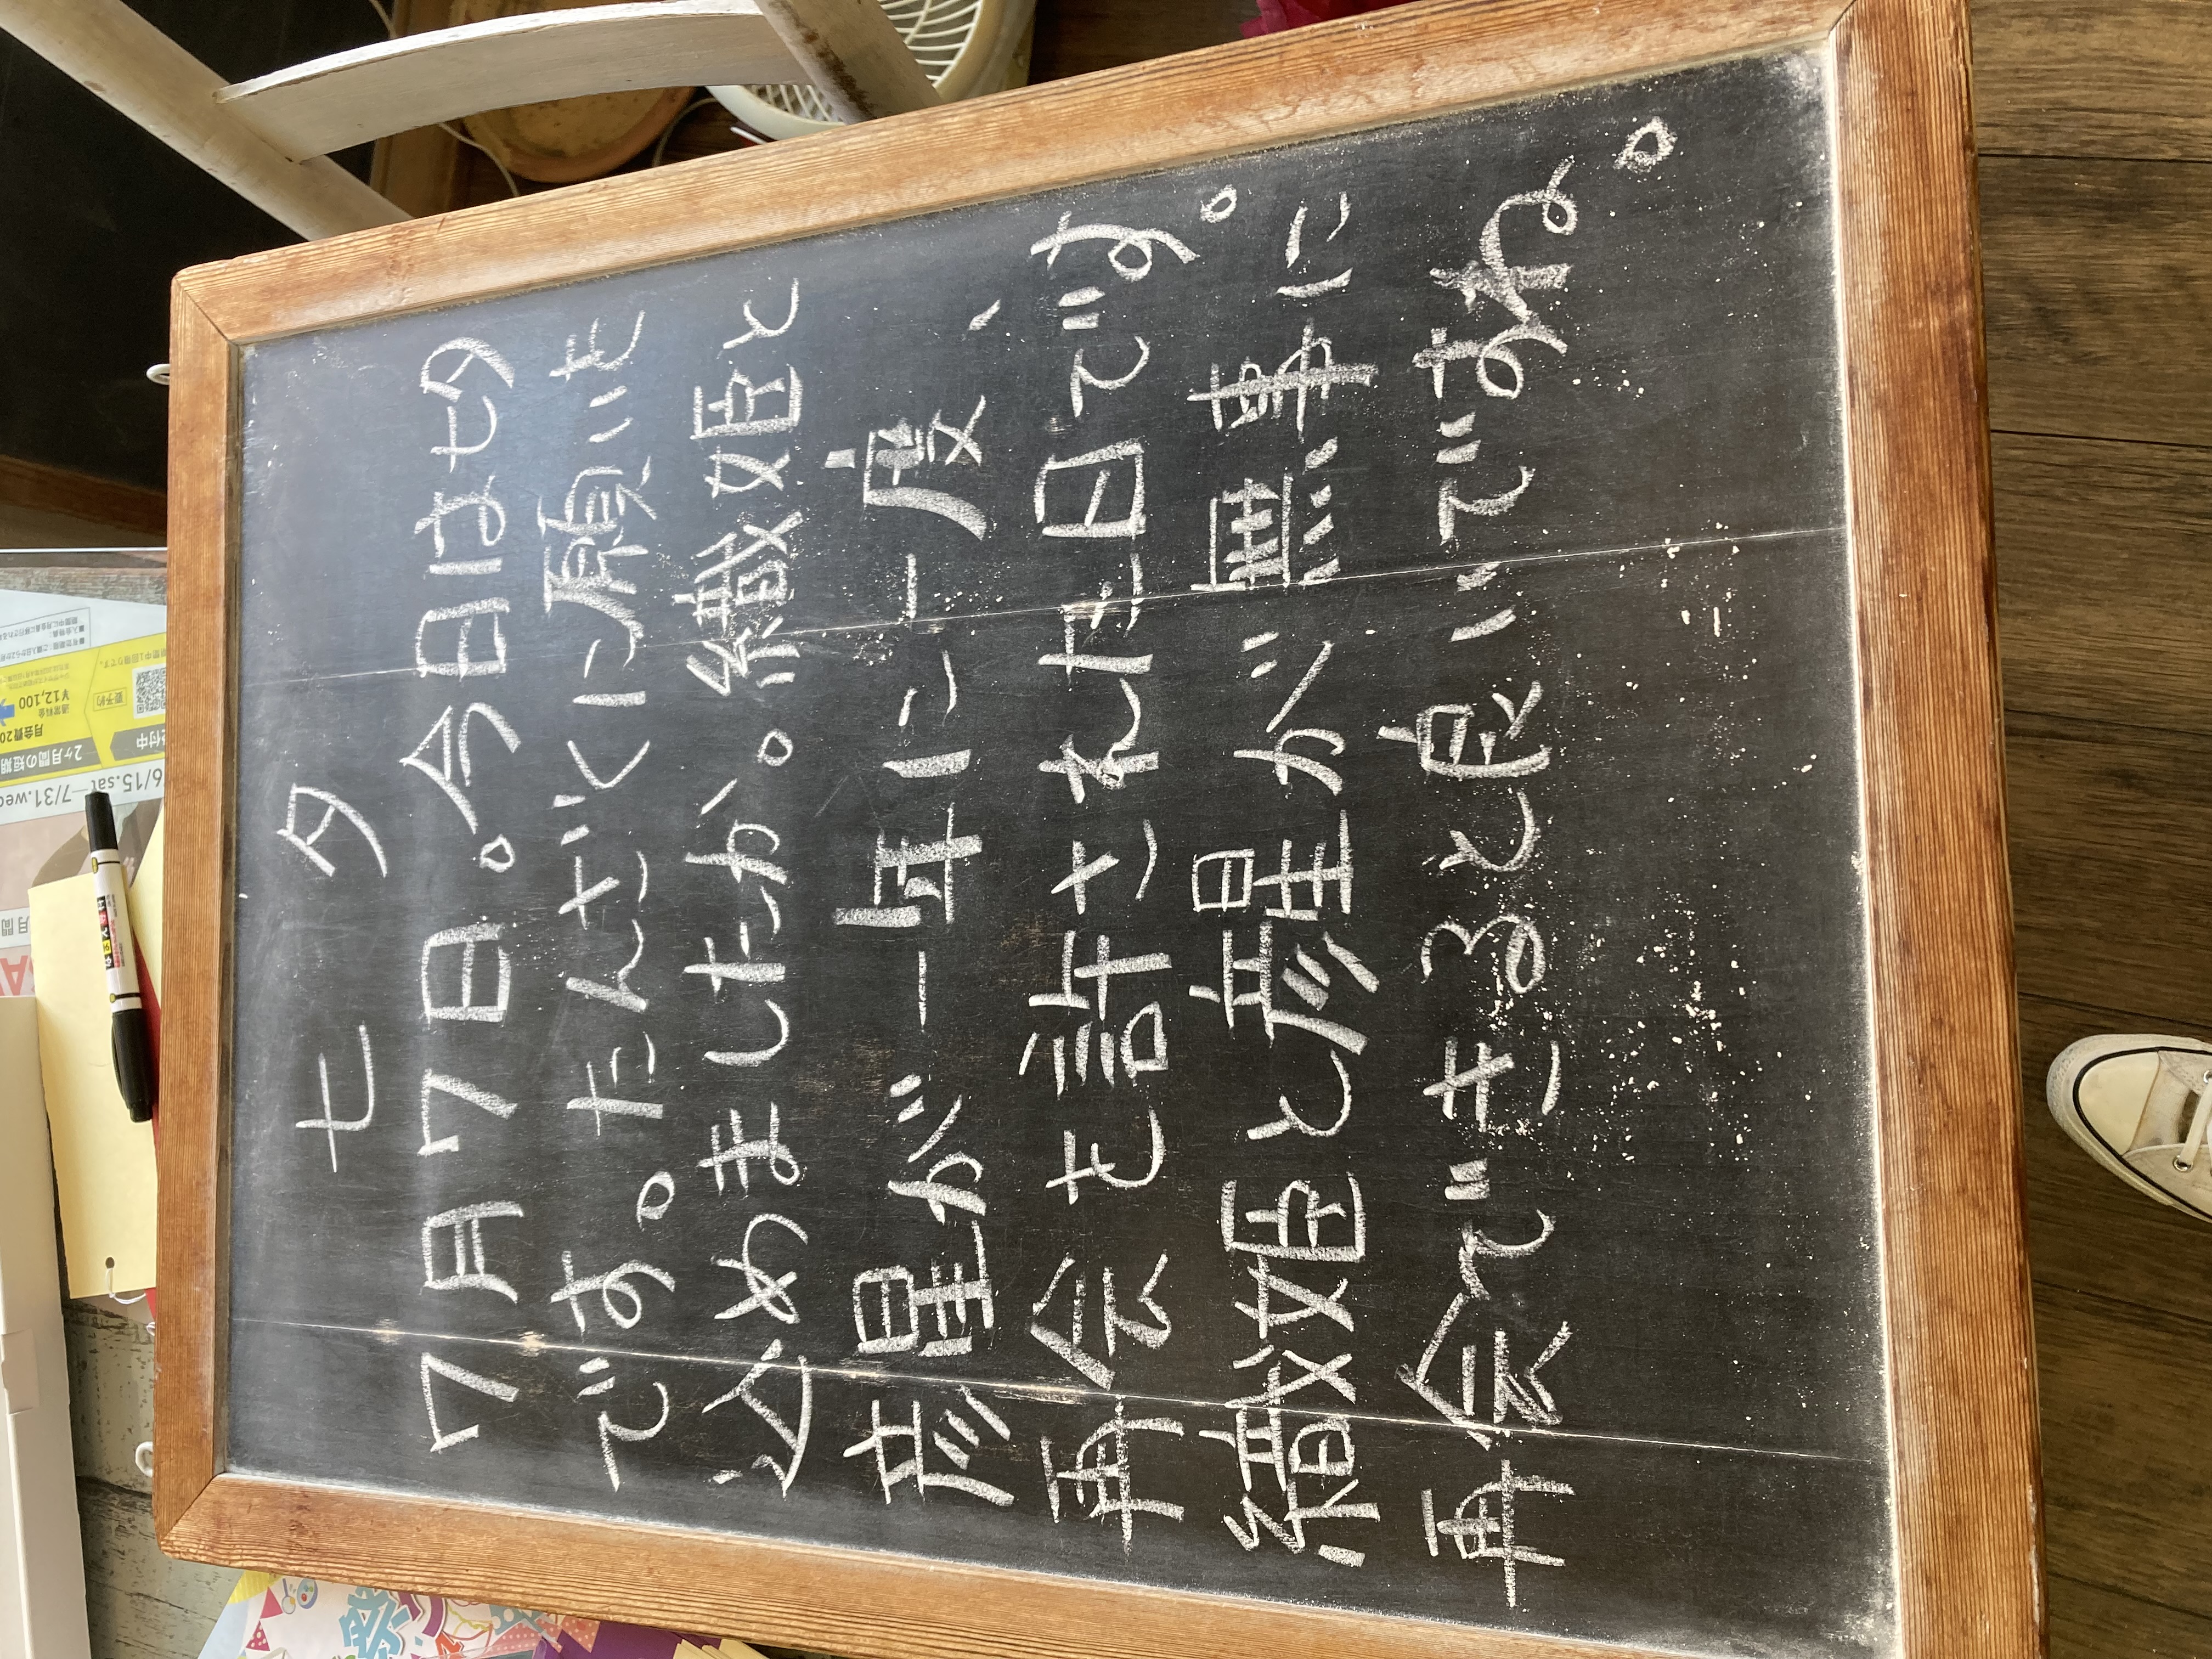 七夕
7月7日。今日は七夕
です。たんざくに願いを
込めましたか。織姫と
彦星が一年に一度、
再会を許された日です。
織姫と彦星が無事に
再会できると良いですね。
6/15.sat—7/31.wed
2ヶ月間の短期
付中
月会費20
通常料金
¥12,100
要予約
月間
祭